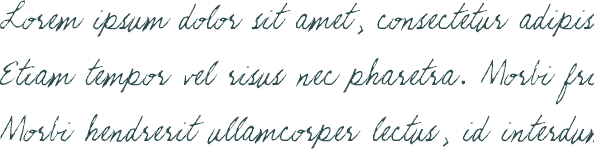 Lorem ipsum dolor sit amet, consectetur adipis
Etiam tempor vel risus nec pharetra. Morbi fri
Morbi hendrerit ullamcorper lectus, id interdum